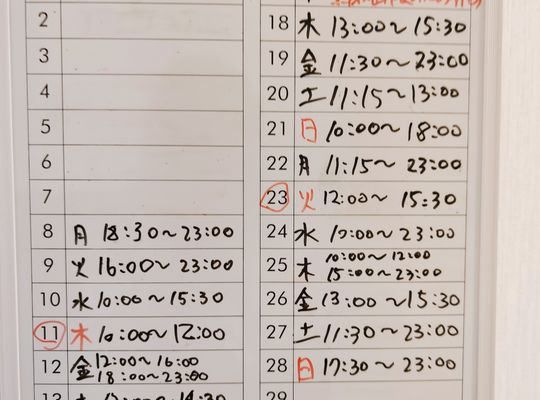 2
3
4
5
6
7
8 月 18:30~23:00
9 火 16:00~23:00
10 水 10:00~15:30
11 木 10:00~12:00
12 金 12:00~16:00
18:00~23:00
13 土
18 木 13:00~15:30
19 金 11:30~23:00
20 土 11:15~13:00
21 日 10:00~18:00
22 月 11:15~23:00
23 火 12:00~15:30
24 水 10:00~23:00
25 木 10:00~12:00
15:00~23:00
26 金 13:00~15:30
27 土 11:30~23:00
28 日 17:30~23:00
29